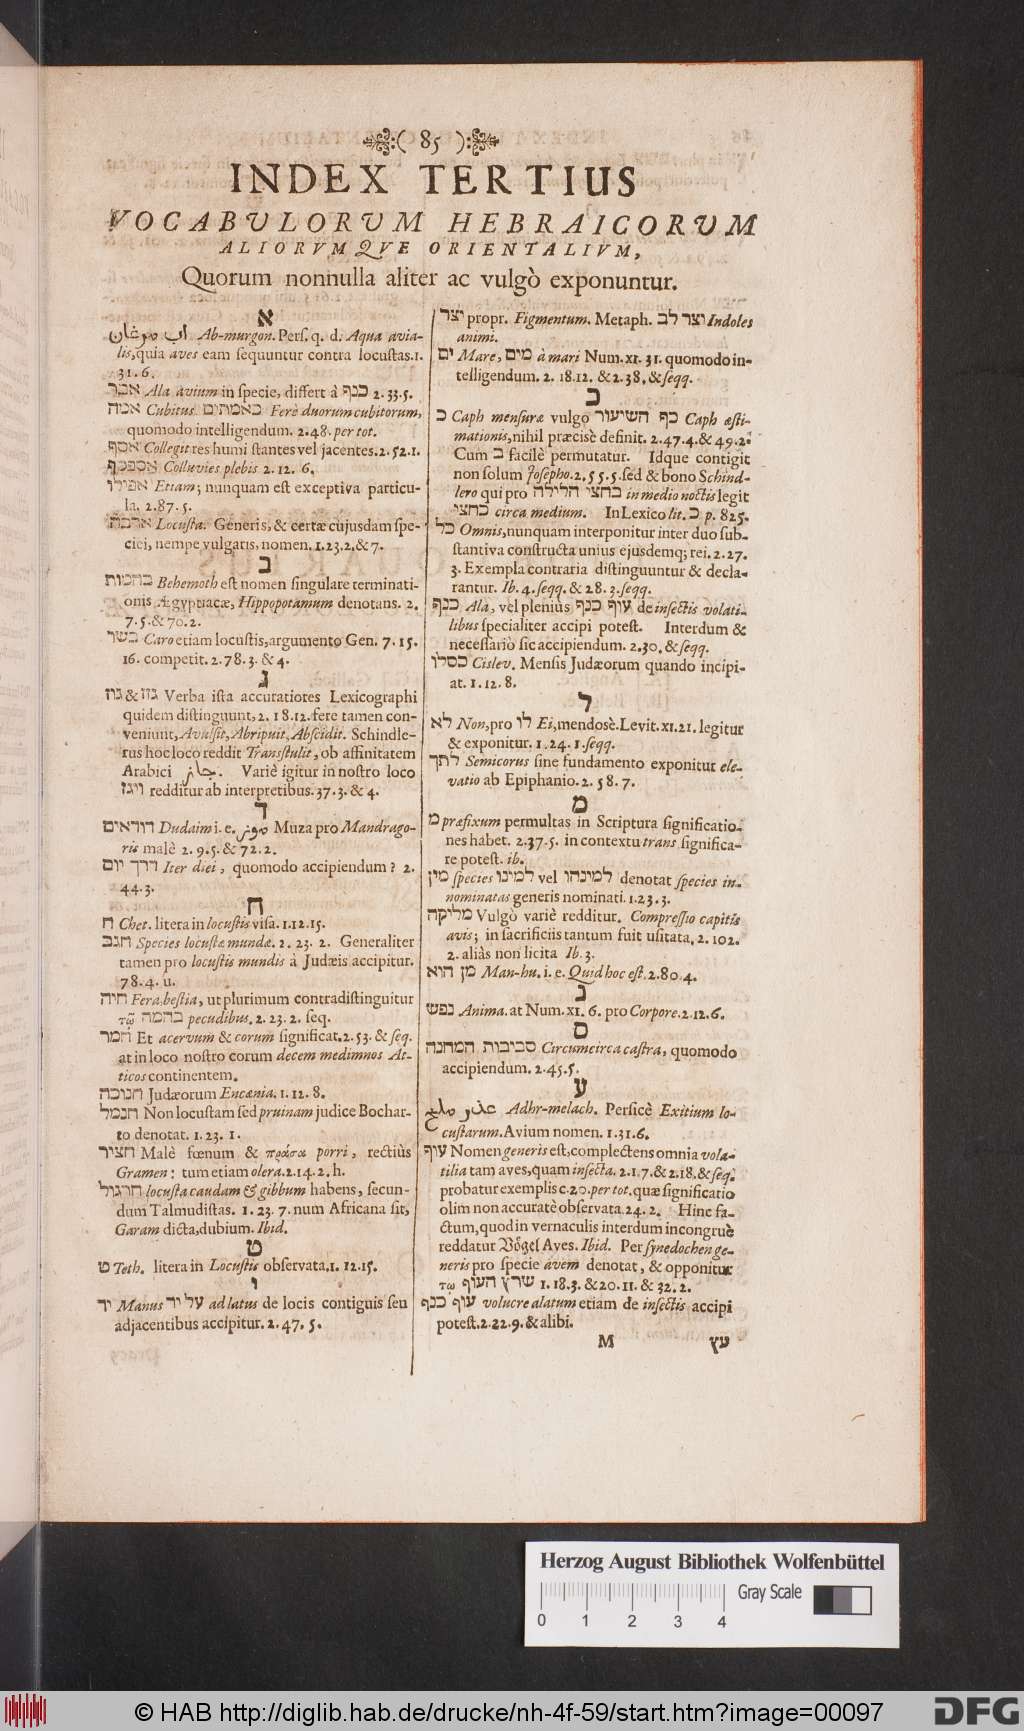 ( 85 )
INDEX TERTIUS
VOCABULORUM HEBRAICORUM
ALIORVMQVE ORIENTALIVM,
Quorum nonnulla aliter ac vulgò exponuntur.
א
اب مرغان Ab-murgon. Pers. q. d. Aqua avia-
lis, quia aves eam sequuntur contra locustas. 1.
31. 6.
אבר Ala avium in specie, differt à כנף 2. 33. 5.
אמה Cubitus. באמתים Ferè duorum cubitorum,
quomodo intelligendum. 2. 48. per tot.
אסף Collegit res humi stantes vel jacentes. 2. 52. 1.
אספסף Colluvies plebis 2. 12. 6.
אפילו Etiam; nunquam est exceptiva particu-
la. 2. 87. 5.
ארבה Locusta. Generis, & certæ cujusdam spe-
ciei, nempe vulgaris, nomen. 1. 23. 2. & 7.
ב
בהמות Behemoth est nomen singulare terminati-
onis Ægyptiacæ, Hippopotamum denotans. 2.
7. 5. & 70. 2.
בשר Caro etiam locustis, argumento Gen. 7. 15.
16. competit. 2. 78. 3. & 4.
ג
גוז & גזז Verba ista accuratiores Lexicographi
quidem distinguunt, 2. 18. 12. fere tamen con-
veniunt, Avulsit, Abripuit, Abscidit. Schindle-
rus hoc loco reddit Transtulit, ob affinitatem
Arabici جاز. Variè igitur in nostro loco
ויגז redditur ab interpretibus. 37. 3. & 4.
ד
דודאים Dudaim i. e. موز Muza pro Mandrago-
ris malè 2. 9. 5. & 72. 2.
דרך יום Iter diei, quomodo accipiendum? 2.
44. 3.
ח
ח Chet. litera in locustis visa. 1. 12. 15.
חגב Species locustæ mundæ. 2. 23. 2. Generaliter
tamen pro locustis mundis à Judæis accipitur.
78. 4. u.
חיה Fera, bestia, ut plurimum contradistinguitur
τῶ בהמה pecudibus. 2. 23. 2. seq.
חמר Et acervum & corum significat. 2. 53. & seq.
at in loco nostro corum decem medimnos At-
ticos continentem.
חנוכה Judæorum Encænia. 1. 12. 8.
חנמל Non locustam sed pruinam judice Bochar-
to denotat. 1. 23. 1.
חציר Malè fœnum & πράσα porri, rectiùs
Gramen: tum etiam olera. 2. 14. 2. h.
חרגול locusta caudam & gibbum habens, secun-
dum Talmudistas. 1. 23. 7. num Africana sit,
Garam dicta, dubium. Ibid.
ט
ט Teth. litera in Locustis observata. 1. 12. 15.
י
יד Manus על יד ad latus de locis contiguis seu
adjacentibus accipitur. 2. 47. 5.
יצר propr. Figmentum. Metaph. יצר לב Indoles
animi.
ים Mare, מים à mari Num. XI. 31. quomodo in-
telligendum. 2. 18. 12. & 2. 38. & seqq.
כ
כ Caph mensuræ vulgo כף השיעור Caph æsti-
mationis, nihil præcisè definit. 2. 47. 4. & 49. 2.
Cum ב facilè permutatur. Idque contigit
non solum Josepho. 2. 55. 5. sed & bono Schind-
lero qui pro בחצי הלילה in medio noctis legit
כחצי circa medium. In Lexico lit. כ p. 825.
כל Omnis, nunquam interponitur inter duo sub-
stantiva constructa unius ejusdemq; rei. 2. 27.
3. Exempla contraria distinguuntur & decla-
rantur. Ib. 4. seqq. & 28. 3. seqq.
כנף Ala, vel pleniùs עוף כנף de insectis volati-
libus specialiter accipi potest. Interdum &
necessariò sic accipiendum. 2. 30. & seqq.
כסלו Cislev. Mensis Judæorum quando incipi-
at. 1. 12. 8.
ל
לא Non, pro לו Ei, mendosè. Levit. XI. 21. legitur
& exponitur. 1. 24. 1. seqq.
לתך Semicorus sine fundamento exponitur ele-
vatio ab Epiphanio. 2. 58. 7.
מ
מ præfixum permultas in Scriptura significatio-
nes habet. 2. 37. 5. in contextu trans significa-
re potest. ib.
מין species למינו vel למינהו denotat species in-
nominatas generis nominati. 1. 23. 3.
מליקה Vulgò variè redditur. Compressio capitis
avis; in sacrificiis tantum fuit usitata. 2. 102.
2. aliàs non licita Ib. 3.
מן הוא Man-hu. i. e. Quid hoc est. 2. 80. 4.
נ
נפש Anima. at Num. XI. 6. pro Corpore. 2. 12. 6.
ס
סביבות המחנה Circumcirca castra, quomodo
accipiendum. 2. 45. 5.
ע
عذر ملخ Adhr-melach. Persicè Exitium lo-
custarum. Avium nomen. 1. 31. 6.
עוף Nomen generis est, complectens omnia vola-
tilia tam aves, quam insecta. 2. 1. 7. & 2. 18. & seq.
probatur exemplis c. 20. per tot. quæ significatio
olim non accuratè observata. 24. 2. Hinc fa-
ctum, quod in vernaculis interdum incongruè
reddatur Vögel Aves. Ibid. Per synedochen ge-
neris pro specie avem denotat, & opponitur
τῷ שרץ העוף 1. 18. 3. & 20. 11. & 32. 2.
עוף כנף volucre alatum etiam de insectis accipi
potest. 2. 22. 9. & alibi.
M עץ
Herzog August Bibliothek Wolfenbüttel
Gray Scale
0 1 2 3 4
© HAB http://diglib.hab.de/drucke/nh-4f-59/start.htm?image=00097
DFG